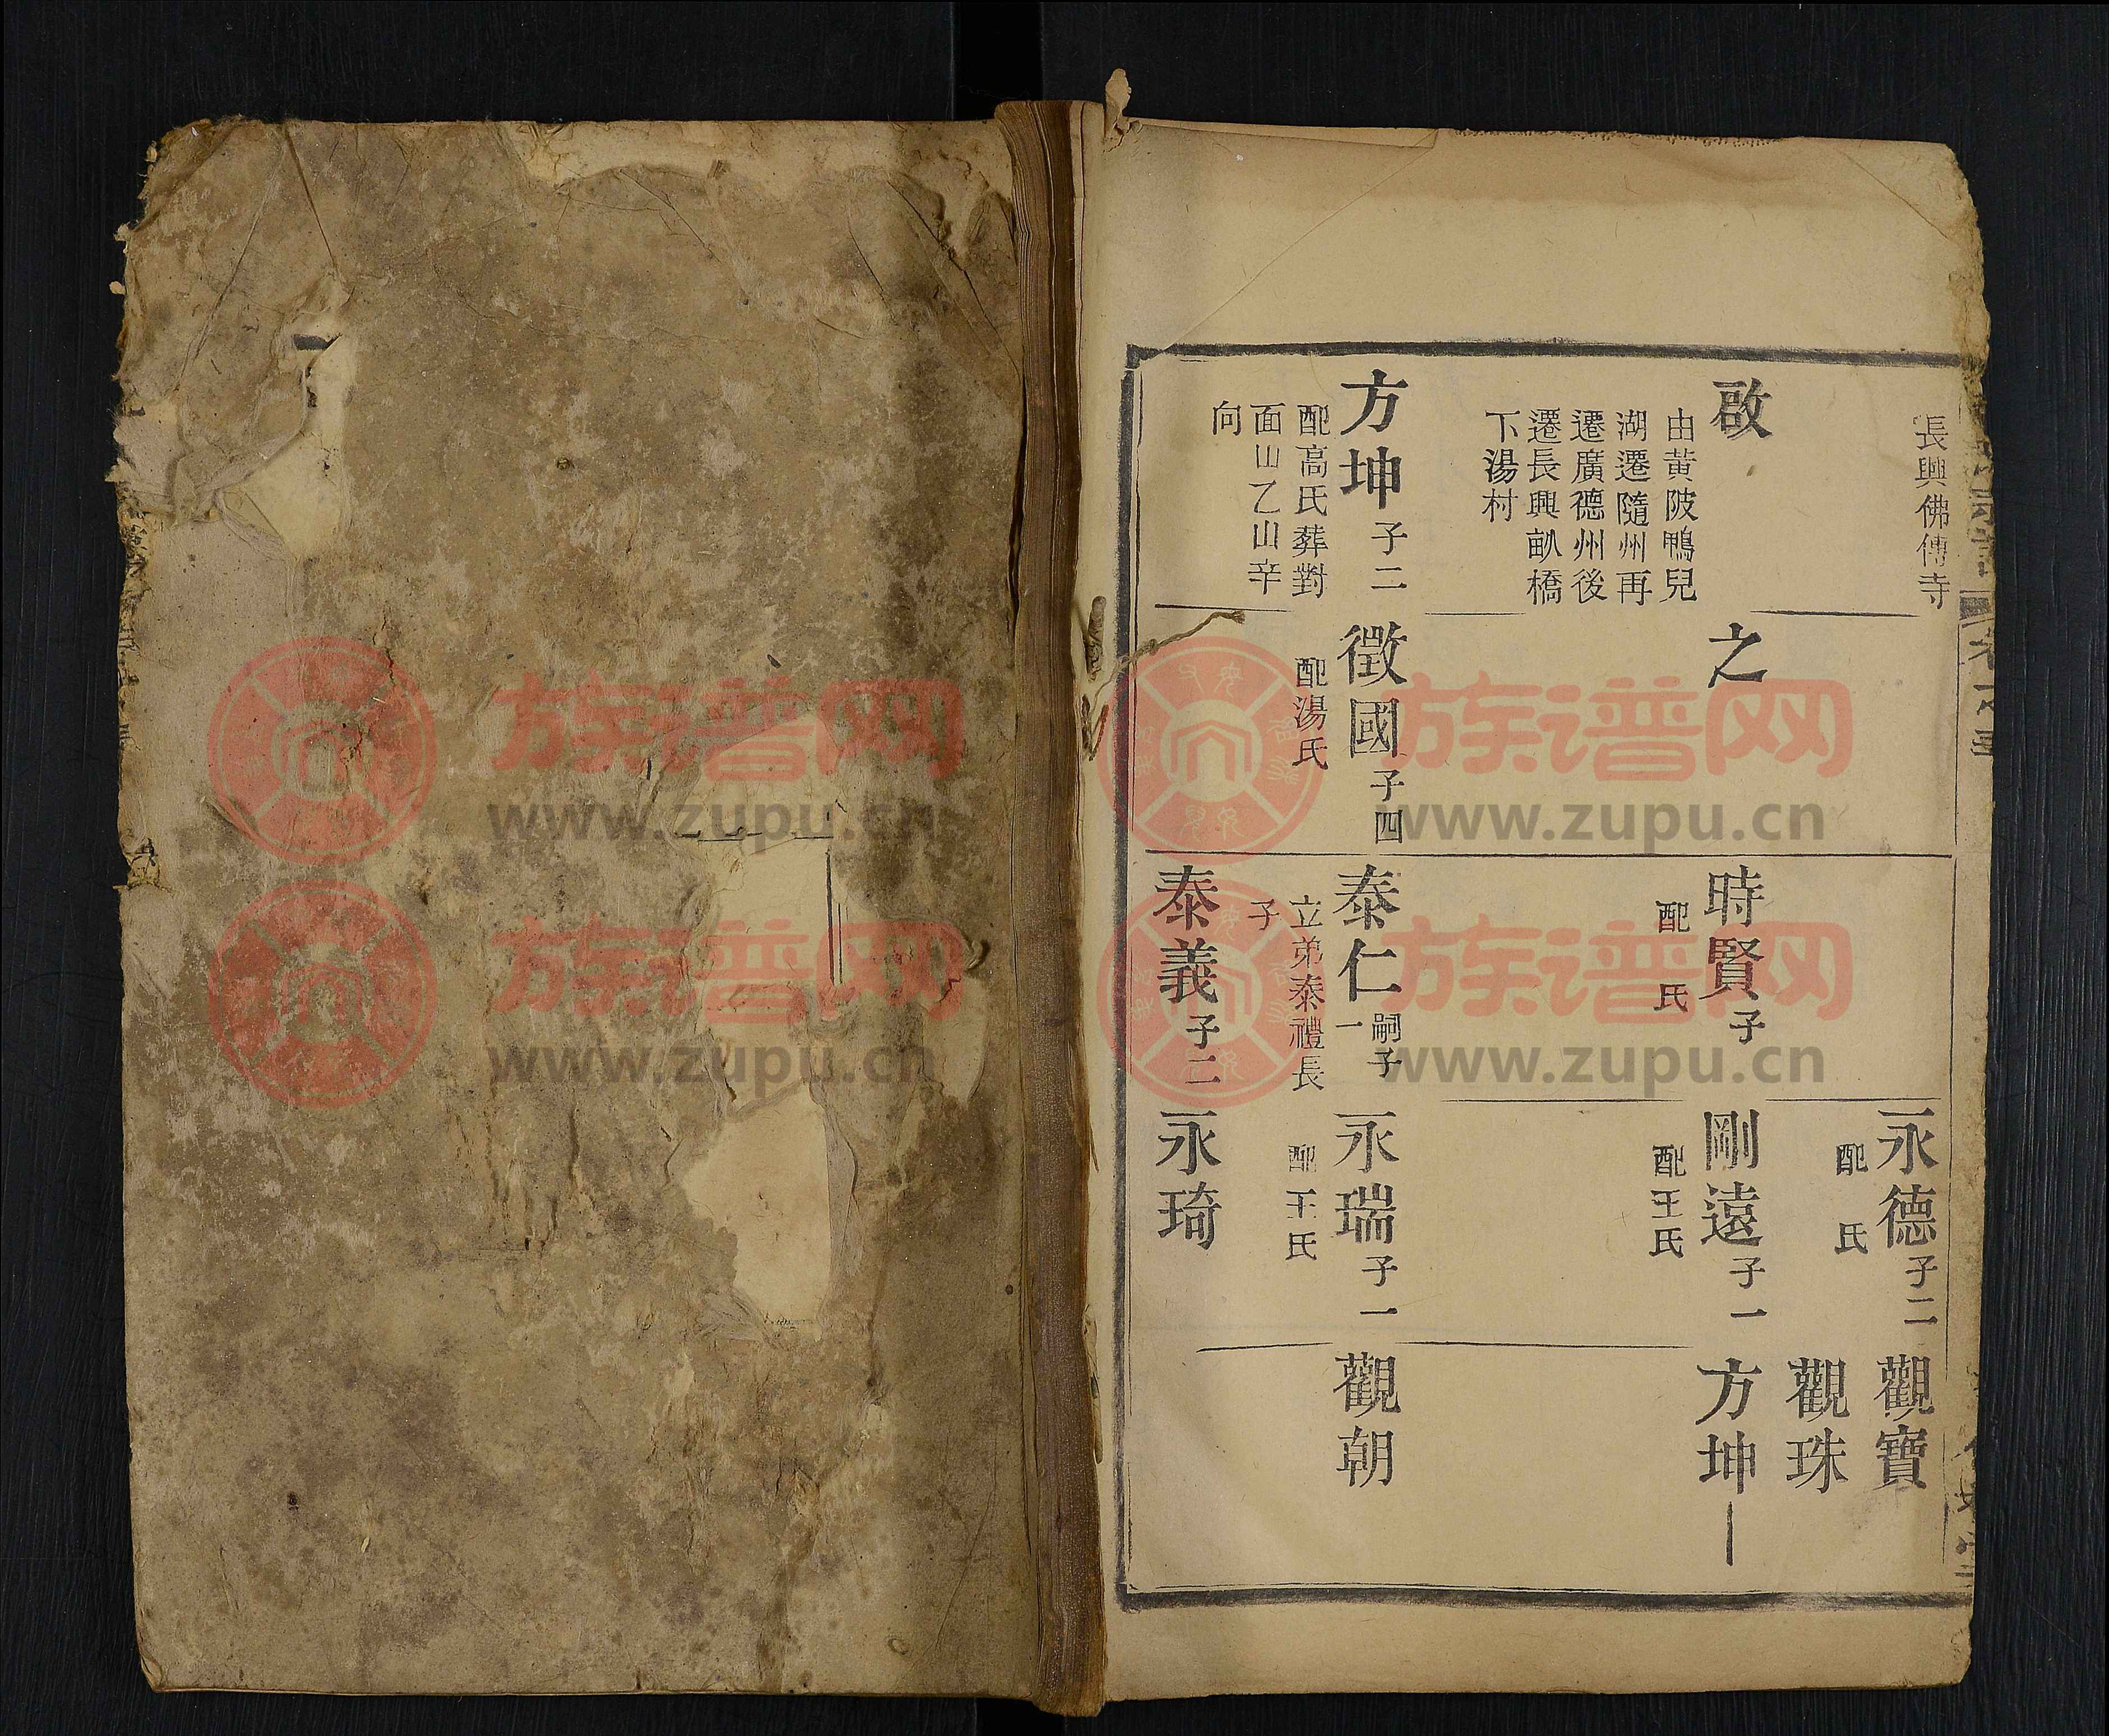 長興佛傳寺
啟
由黃陂鴨兒
湖遷隨州再
遷廣德州後
遷長興畝橋
下湯村
方坤子二
配高氏葬對
面山乙山辛
向
之
徵國子四
配湯氏
時賢子
配 氏
泰仁嗣子一
立弟泰禮長
子
泰義子二
永德子二
配 氏
剛遠子一
配王氏
永瑞子一
配王氏
永琦
觀寶
觀珠
方坤
觀朝
族谱网
www.zupu.cn
族谱网
www.zupu.cn
族谱网
www.zupu.cn
族谱网
www.zupu.cn